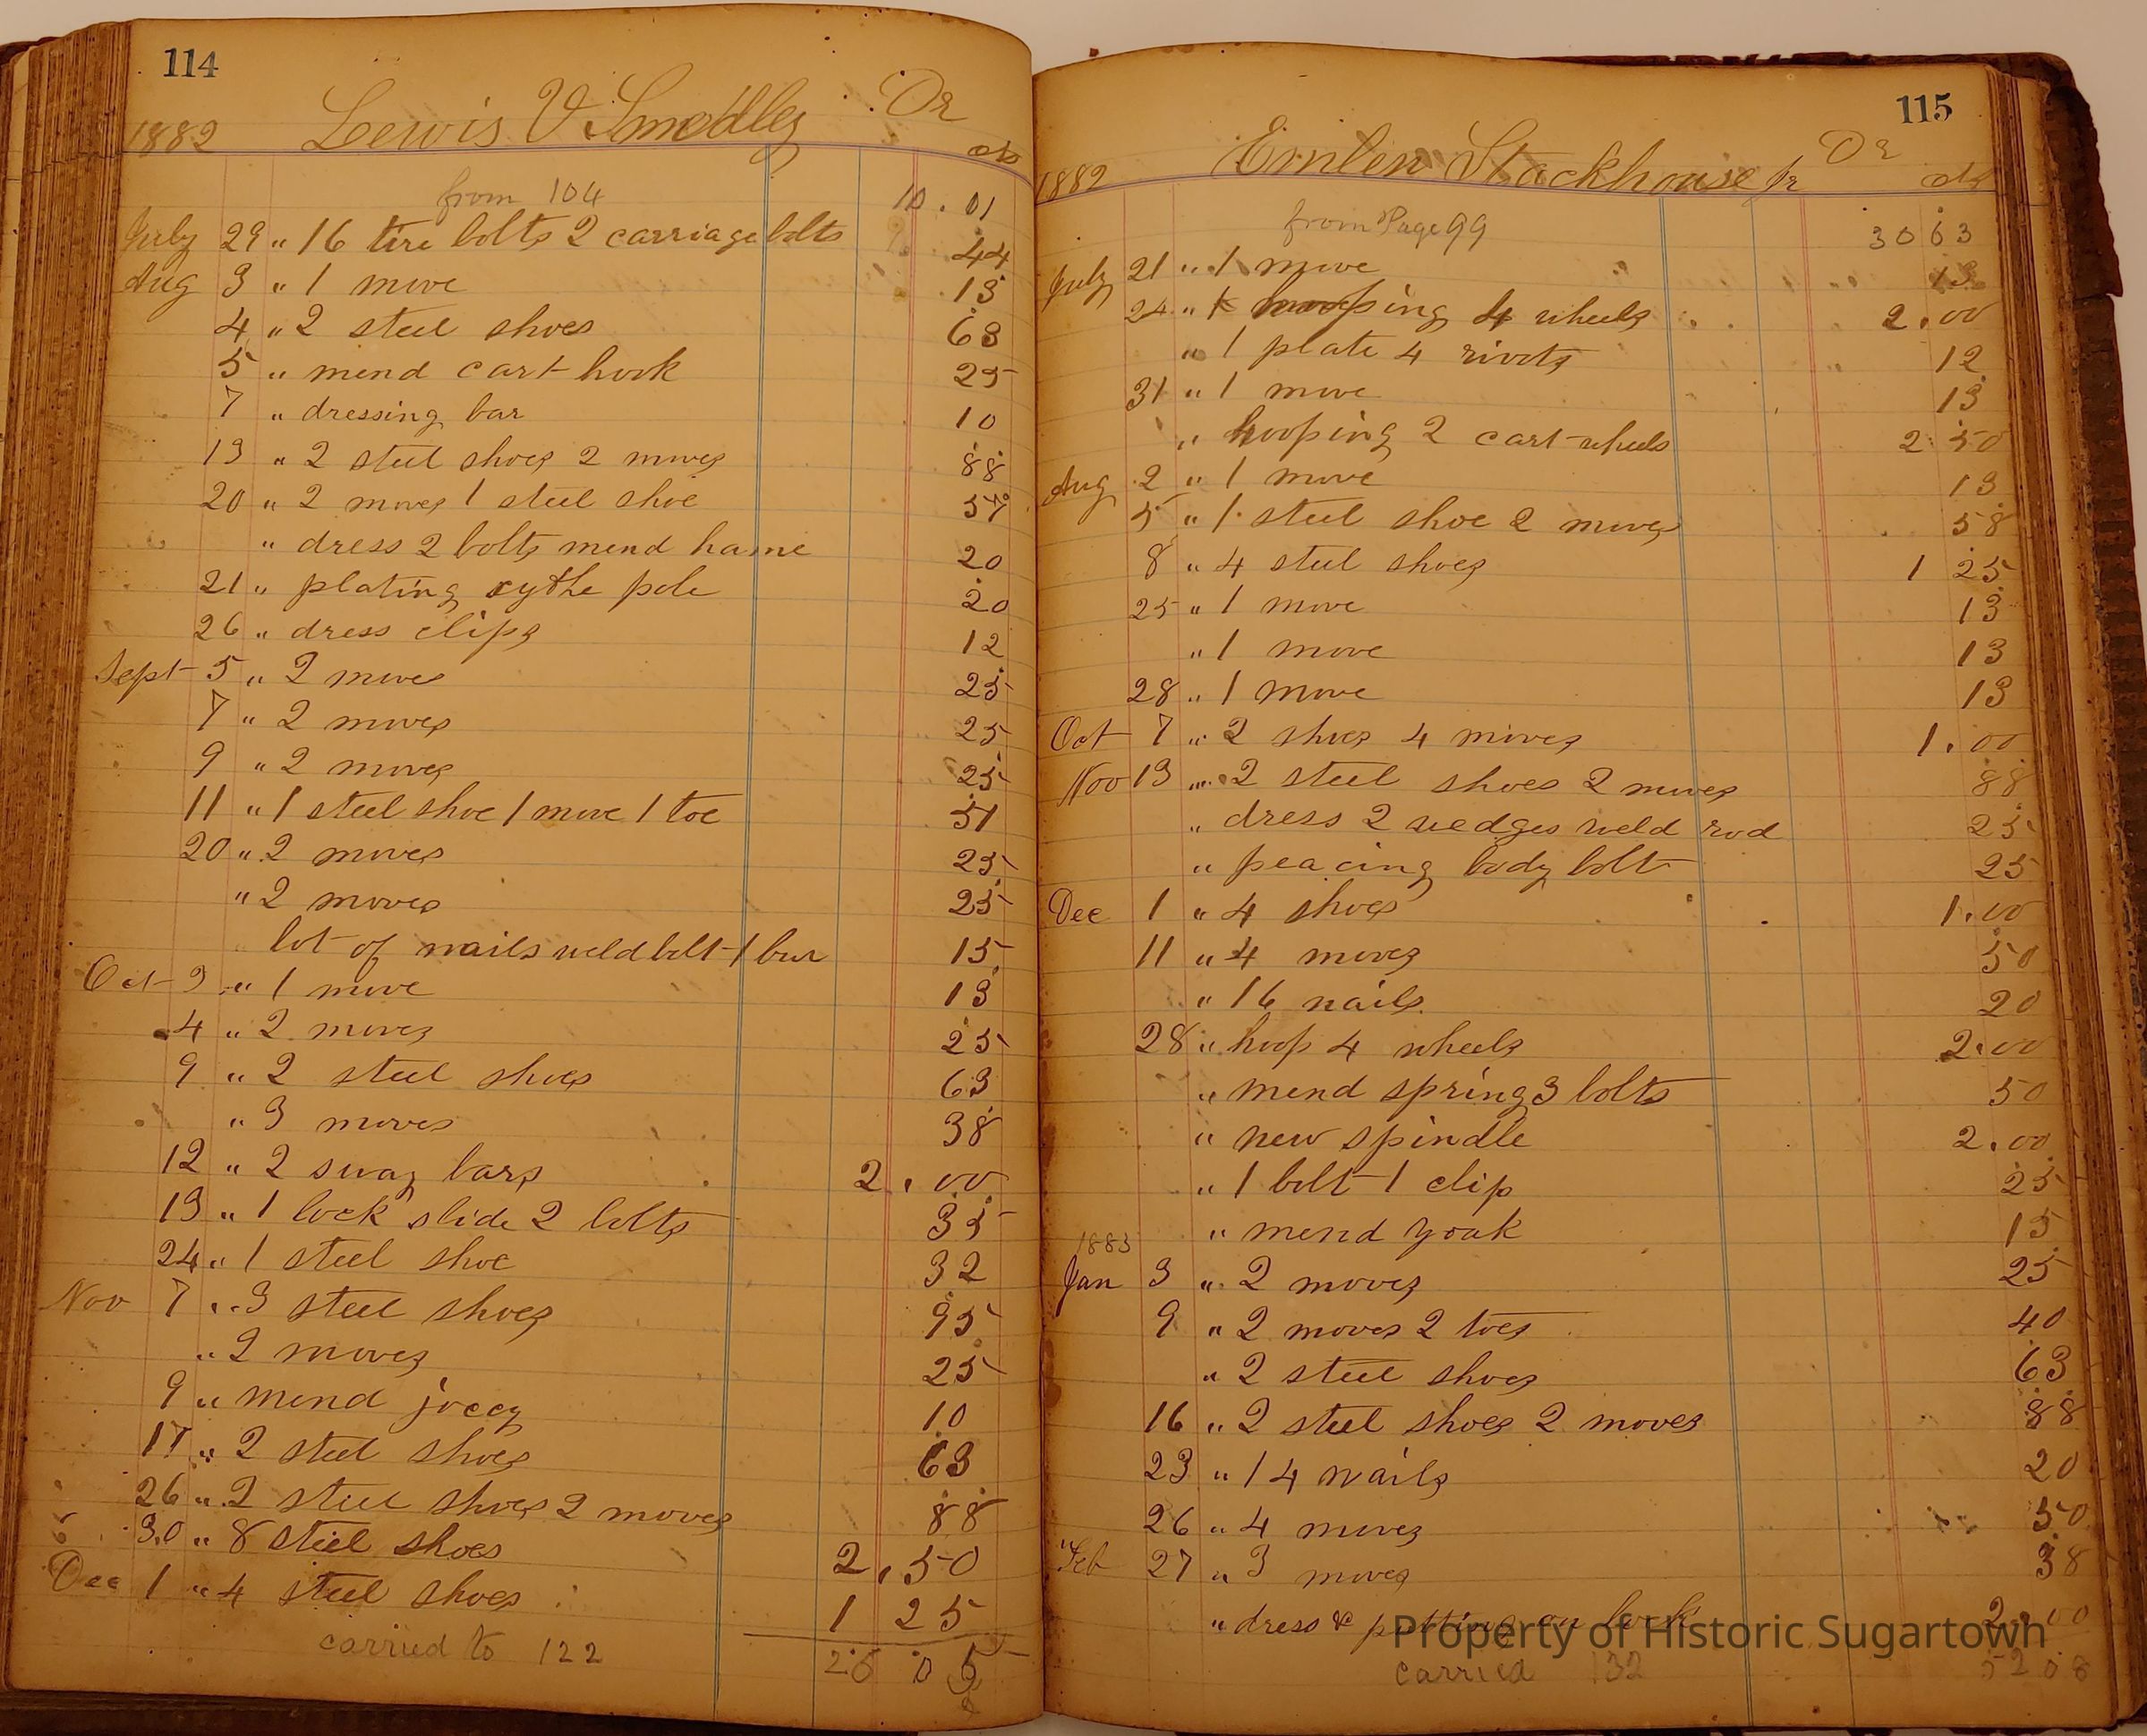 114
1882 Lewis V Smedley Dr
cts
from 104 10.01
July 29 " 16 tire bolts 2 carriage bolts 44
Aug 3 " 1 move 13
4 " 2 steel shoes 63
5 " mend cart hook 25
7 " dressing bar 10
13 " 2 steel shoes 2 moves 88
20 " 2 moves 1 steel shoe 57
" dress 2 bolts mend hame 20
21 " plating sythe pole 20
26 " dress clips 12
Sept 5 " 2 moves 25
7 " 2 moves 25
9 " 2 moves 25
11 " 1 steel shoe 1 move 1 toe 51
20 " 2 moves 25
" 2 moves 25
lot of nails weld bolt 1 bur 15
Oct 3 " 1 move 13
4 " 2 moves 25
9 " 2 steel shoes 63
" 3 moves 38
12 " 2 sway bars 2.00
13 " 1 lock slide 2 bolts 35
24 " 1 steel shoe 32
Nov 7 " 3 steel shoes 95
" 2 moves 25
9 " mend joccy 10
17 " 2 steel shoes 63
26 " 2 steel shoes 2 moves 88
30 " 8 steel shoes 2.50
Dec 1 " 4 steel shoes 1 25
carried to 122
115
1882 Emlen Stackhouse Jr Dr
cts
from Page 99 30 63
July 21 " 1 move 13
24 " hooping 4 wheels 2.00
" 1 plate 4 rivots 12
31 " 1 move 13
" hooping 2 cart wheels 2 50
Aug 2 " 1 move 13
5 " 1 steel shoe 2 moves 58
8 " 4 steel shoes 1 25
25 " 1 move 13
" 1 move 13
28 " 1 move 13
Oct 7 " 2 shoes 4 moves 1.00
Nov 13 " 2 steel shoes 2 moves 88
" dress 2 wedges weld rod 25
" peacing body bolt 25
Dec 1 " 4 shoes 1.00
11 " 4 moves 50
" 16 nails 20
28 " hoop 4 wheels 2.00
" mend spring 3 bolts 50
" new spindle 2.00
" 1 bolt 1 clip 25
" mend yoak 15
1883
Jan 3 " 2 moves 25
9 " 2 moves 2 toes 40
" 2 steel shoes 63
16 " 2 steel shoes 2 moves 88
23 " 14 nails 20
26 " 4 moves 50
Feb 27 " 3 moves 38
" dress & putting on lock 2.00
Property of Historic Sugartown
carried 132 52 08